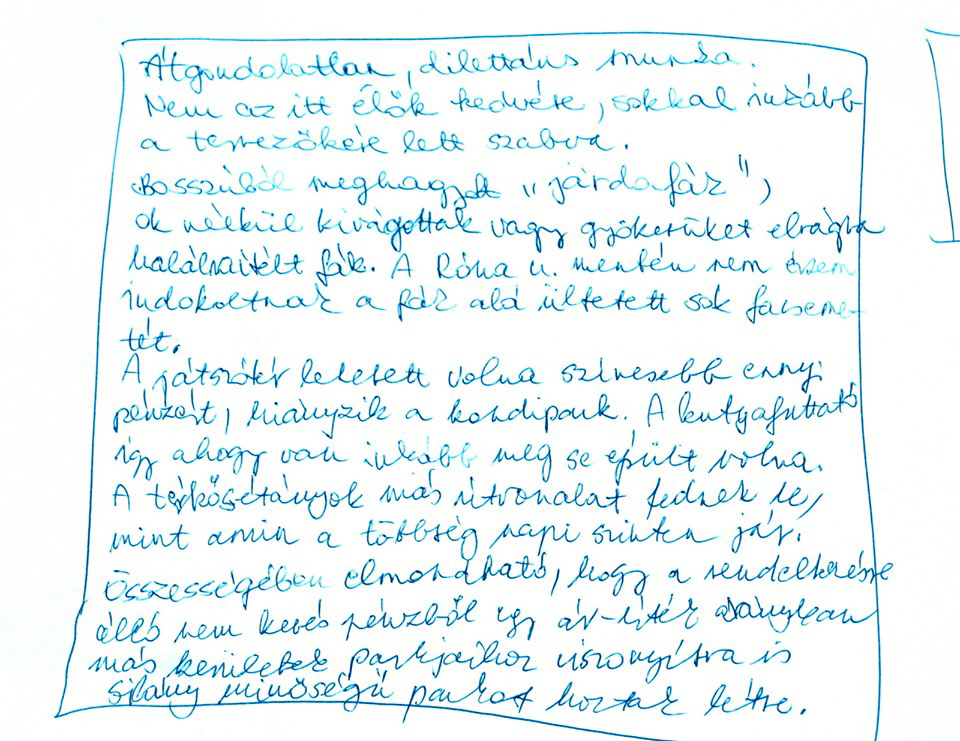 Átgondolatlan, dilettáns munka.
Nem az itt élők kedvére, sokkal inkább
a tervezőkére lett szabva.
Bosszúból meghagyott "járdafák",
ok nélkül kivágottak vagy gyökerüket elvágva
halálraítélt fák. A Róna u. mentén nem érzem
indokoltnak a fák alá ültetett sok facseme-
tét.
A játszótér lehetett volna színesebb ennyi
pénzért, hiányzik a kondipark. A kutyafuttató
így ahogy van inkább meg se épült volna.
A térkősétányok más útvonalat fednek le,
mint amin a többség napi szinten jár.
Összességében elmondható, hogy a rendelkezésre
álló nem kevés pénzből egy ár-érték arányban
más kerületek parkjaihoz viszonyítva is
silány minőségű parkot hoztak létre.